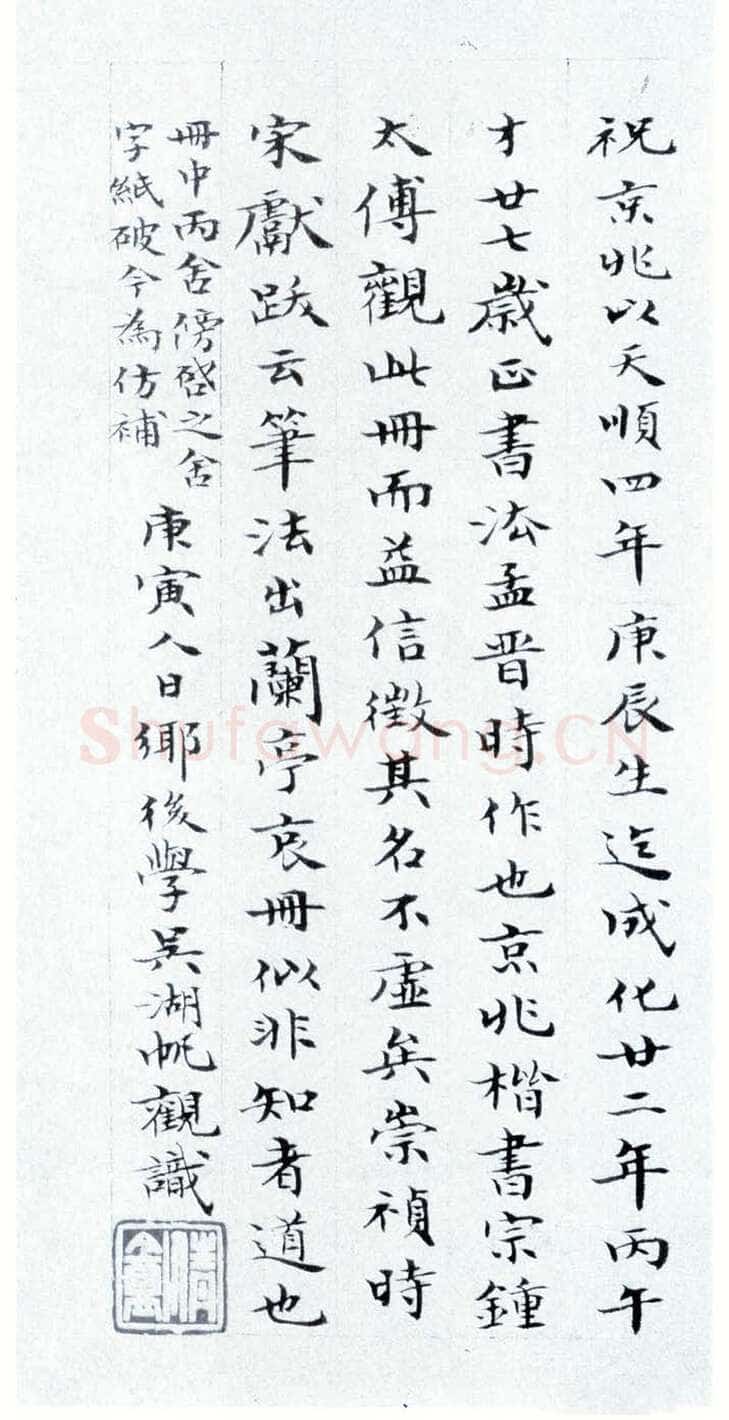 祝京兆以天順四年庚辰生迄成化廿二年丙午
才廿七歲正書法孟晉時作也京兆楷書宗鍾
太傅觀此冊而益信徵其名不虛矣崇禎時
宋獻跋云筆法出蘭亭哀冊似非知者道也
冊中丙舍傍啓之舍
字紙破今為仿補
庚寅人日鄉後學吳湖帆觀識
Shufawang.CN